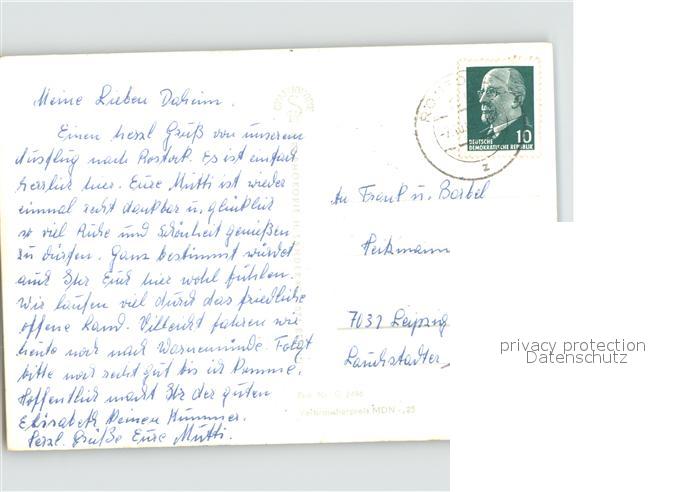 Meine Lieben Daheim.
Einen herzl. Gruß von unserem
Ausflug nach Rostock. Es ist einfach
herrlich hier. Eure Mutti ist wieder
einmal recht dankbar u. glücklich
so viel Ruhe und Schönheit genießen
zu dürfen. Ganz bestimmt würdet
auch Ihr Euch hier wohl fühlen.
Wir laufen viel durch das friedliche
offene Land. Vielleicht fahren wir
heute noch nach Warnemünde. Folgt
bitte noch recht gut bis ich komme.
Hoffentlich macht Ihr der guten
Elisabeth keinen Kummer.
Herzl. Grüße Eure Mutti.
An Frank u. Barbel
Heckmann
7031 Leipzig
Lauchstädter
10
DEUTSCHE
DEMOKRATISCHE REPUBLIK
Verbraucherpreis MDN -,25
privacy protection
Datenschutz